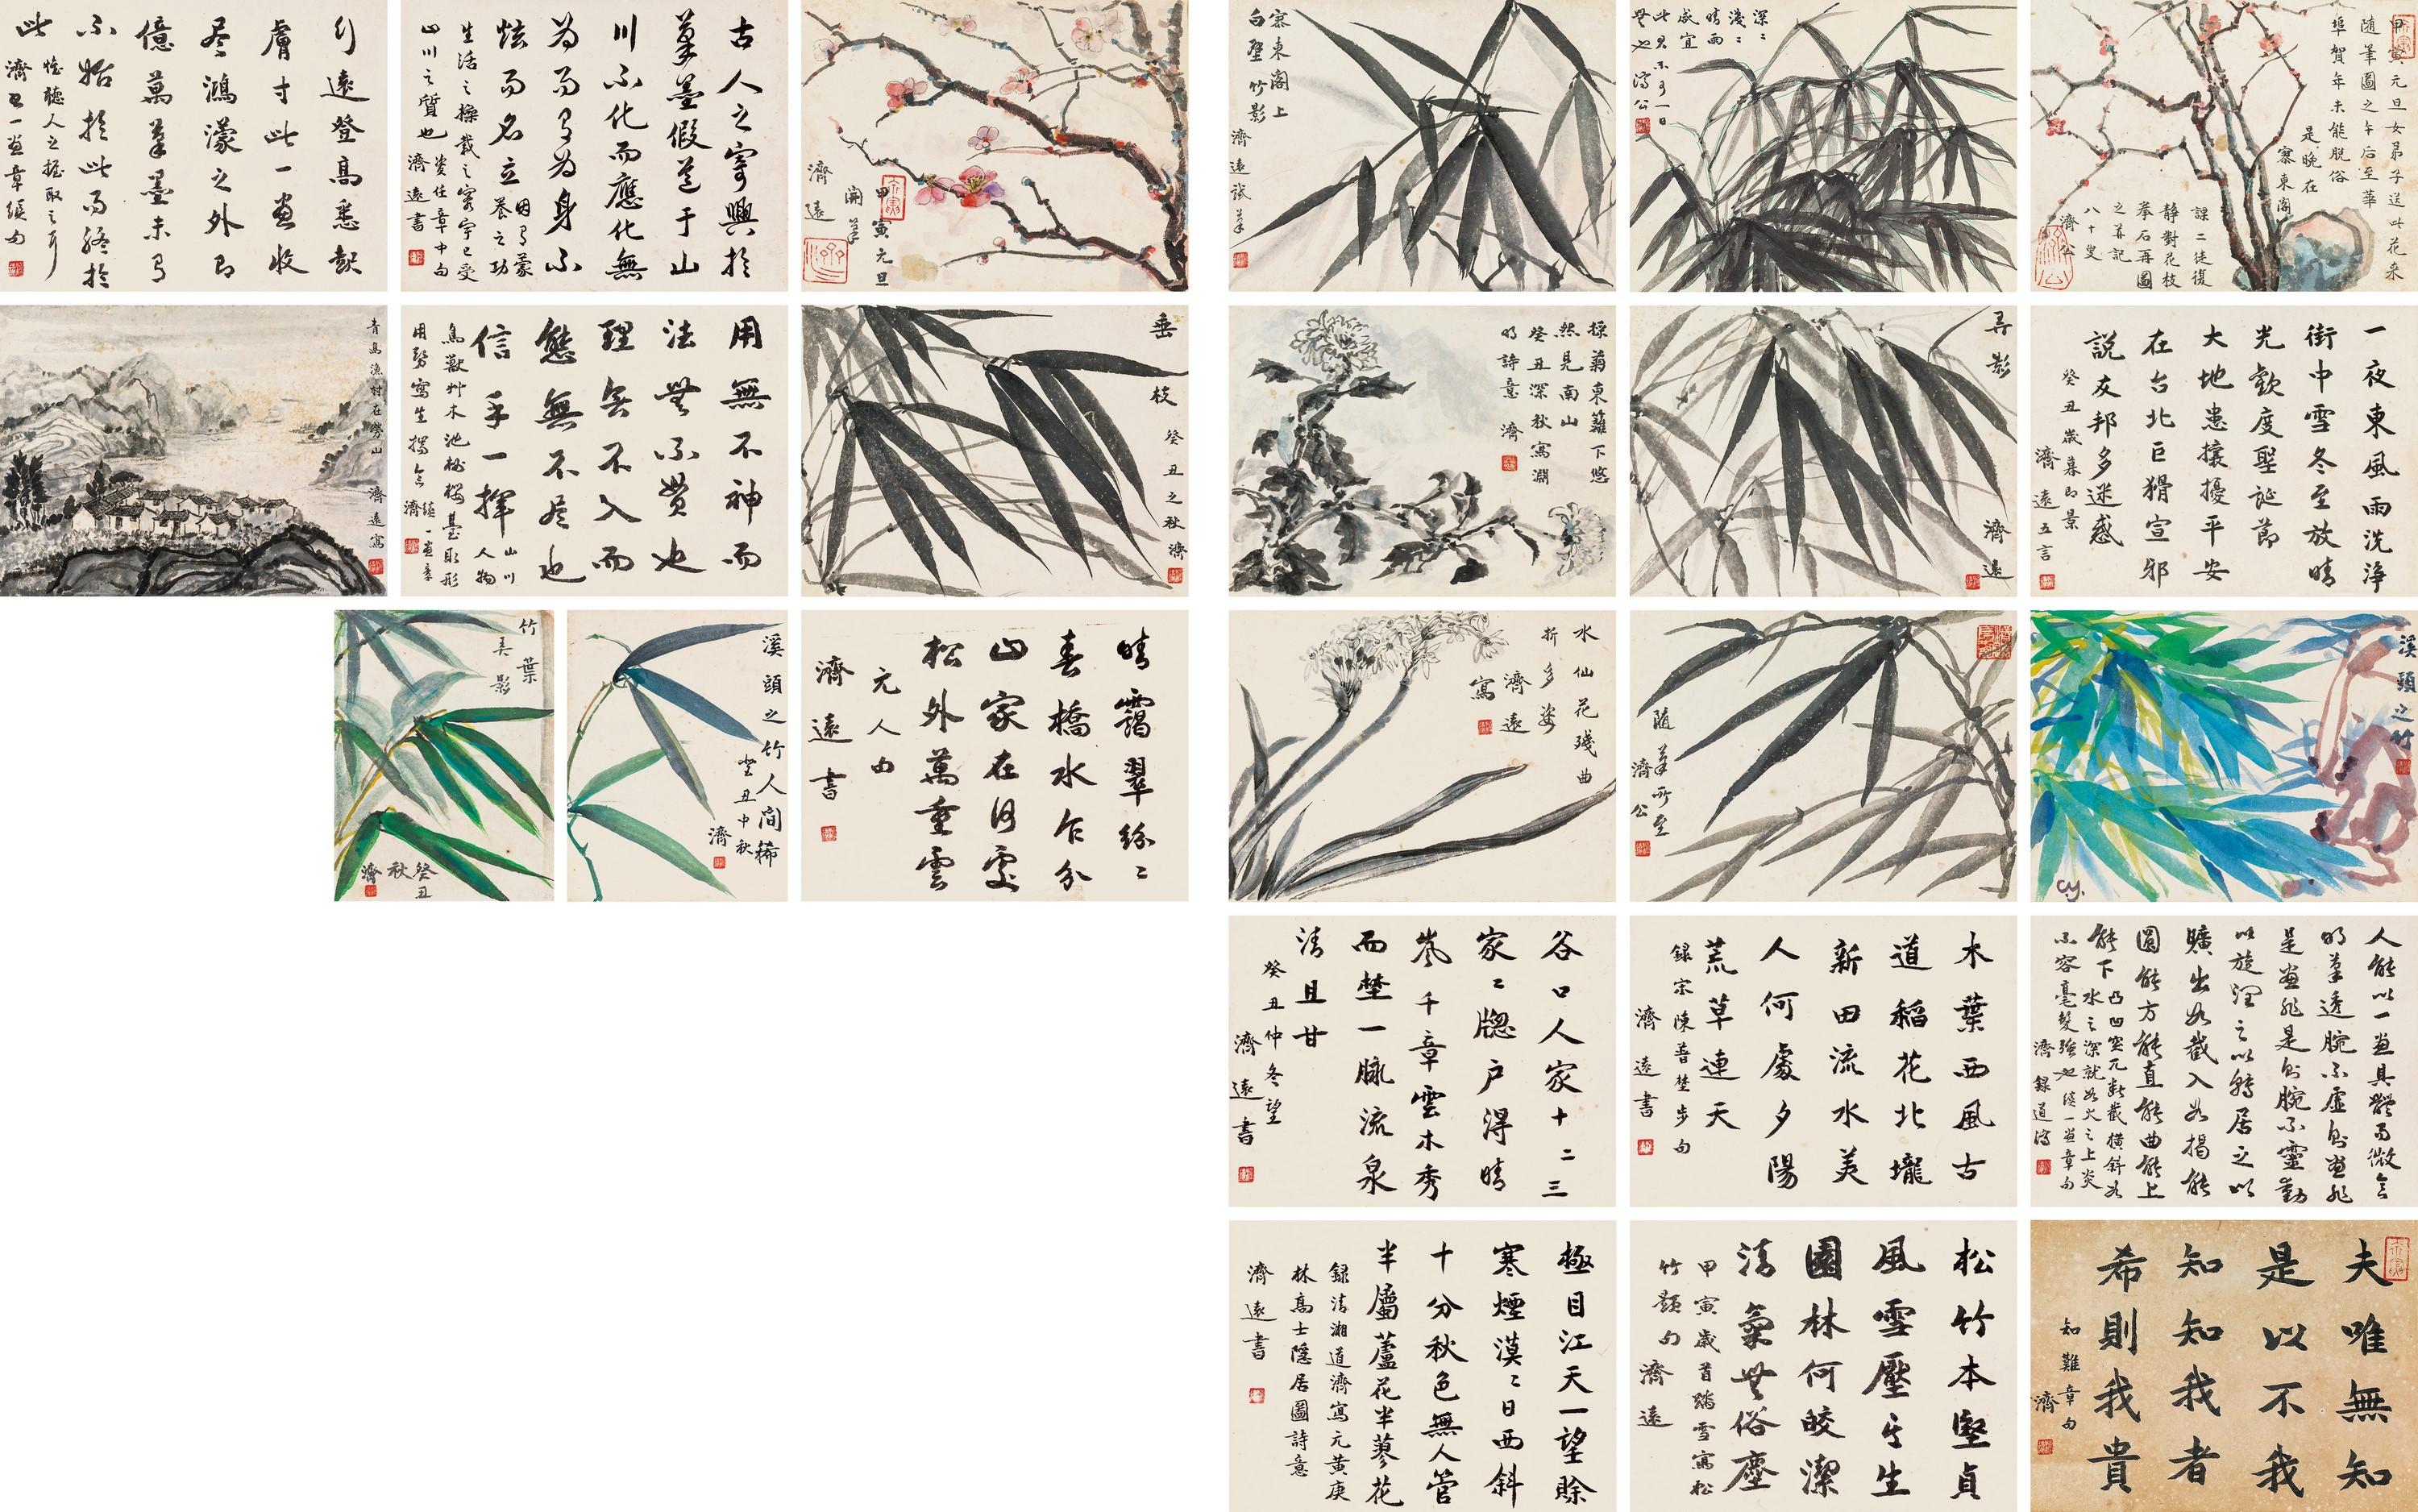 甲寅元旦女弟子送此花來
隨筆圖之午后至華
埠賀年未能脫俗
是晚在
寨東閣
課二徒復
靜對花枝
拳石再圖
之并記
八十叟
濟公
深〻
淺〻
晴雨
咸宜
此君不可一日
無也 濟公
寨東閣上
白壁竹影
濟遠試筆
一夜東風雨洗淨
街中雪冬至放晴
光歡度聖誕節
大地患攘擾平安
在台北巨猾宣邪
説友邦多迷惑
癸丑歲暮即景
濟遠五言
弄影
濟遠
採菊東籬下悠
然見南山
癸丑深秋寫淵
明詩意 濟
溪頭之竹
C.Y.
隨筆所至
濟公
水仙花殘曲
折多姿
濟遠
寫
人能以一畫具體而微意
明筆透腕不虛則畫非
是畫非是則腕不靈動
以旋潤之以轉居之以
曠出如截入如揭能
圓能方能直能曲能上
能下 凸凹突兀斷截橫斜如
水之深就如火之上炎
不容毫髮強也 一畫章句
濟 錄道濟
木葉西風古
道稻花北壠
新田流水美
人何處夕陽
荒草連天
録宗陳普埜步句
濟遠書
谷口人家十二三
家〻牕户得晴
嵐千章雲木秀
而埜一脈流泉
清且甘
癸丑仲冬望
濟遠書
夫唯無知
是以不我
知知我者
希則我貴
知難章句
濟
松竹本堅貞
風雪壓更生
園林何皎潔
清氣無俗塵
甲寅歲首踏雪寫松
竹題句 濟遠
極目江天一望賒
寒煙漠〻日西斜
十分秋色無人管
半屬蘆花半蓼花
録清湘道濟寫元黄庚
林髙士隱居圖詩意
濟遠書
甲寅元旦
開筆
濟遠
古人之寄興於
筆墨假道于山
川不化而應化無
為而有為身不
炫而名立 因有蒙
養之功
生活之操載之寰宇已受
山川之質也 資任章中句
濟遠書
行遠登髙悉起
膚寸此一畫收
尽鴻濛之外即
億萬筆墨未有
不始於此而終於
此 惟聽人之握取之耳
濟 一畫章句
垂枝
癸丑之秋濟
用無不神而
法無不貫也
理無不入而
態無不盡也
信手一揮 山川
人物
鳥獸艸木池榭樓臺取形
用勢寫生揣意 一畫章
濟
青島漁村在勞山
濟遠寫
晴靄翠紛〻
春橋水乍分
山家在何處
松外萬重雲
元人句
濟遠書
溪頭之竹人間稀
癸丑中秋
濟
竹葉
弄影
癸丑
秋
濟